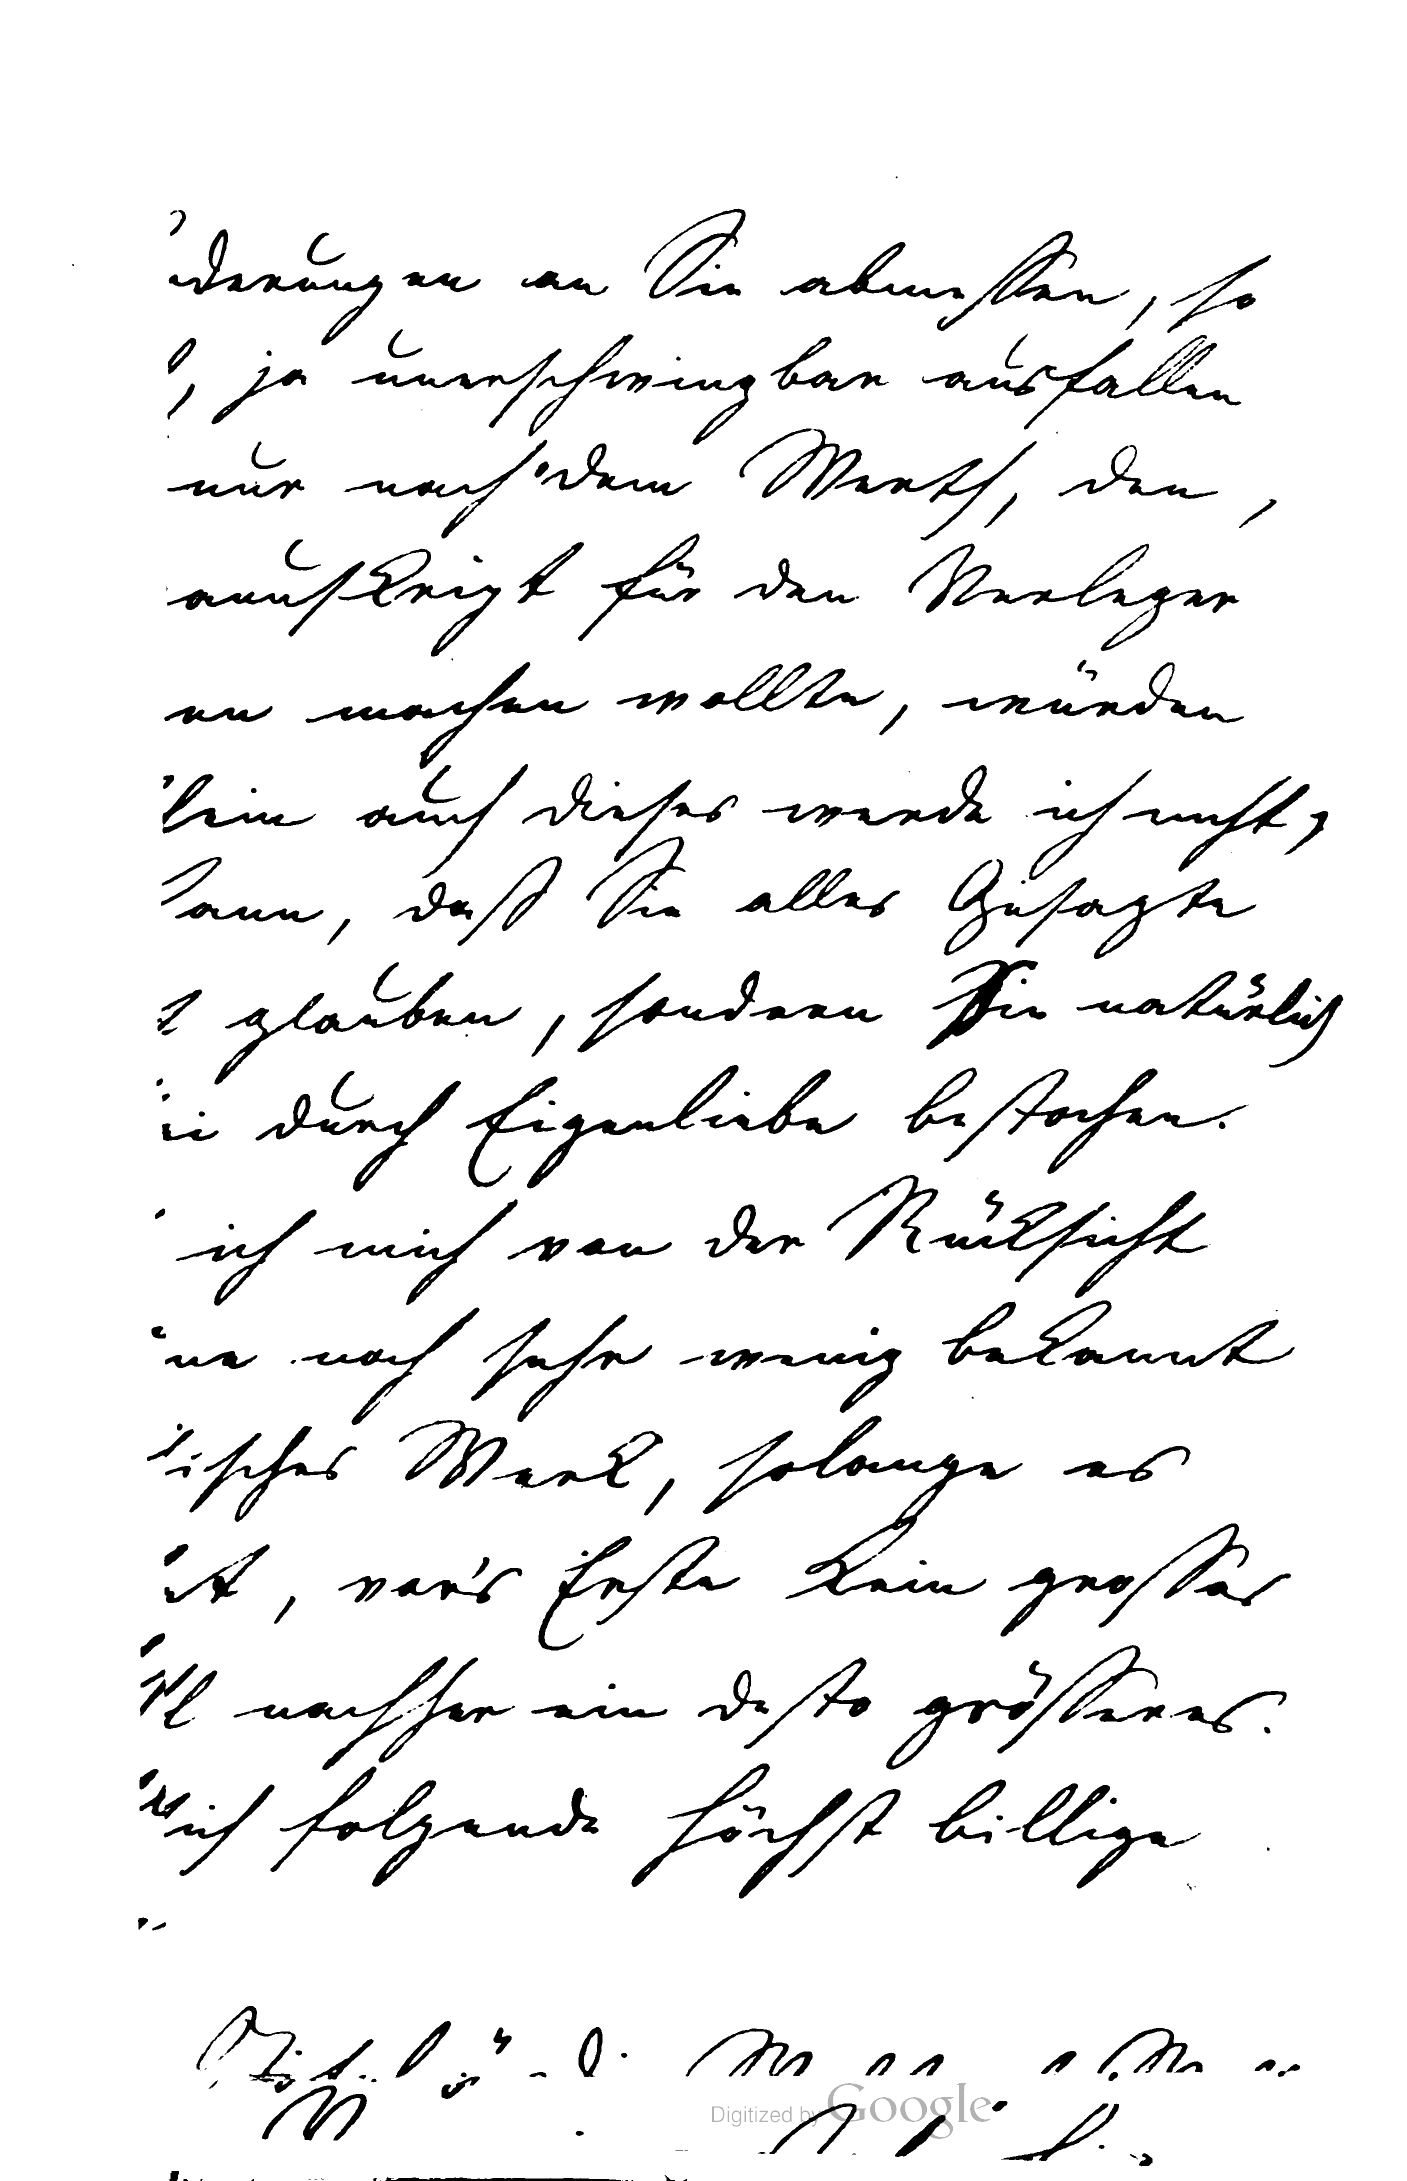 derungen an Sie abmessen, so
, ja unerschwingbar ausfallen
nur nach dem Werth, den,
anuskript für den Verleger
en machen wollte, würden
lein auch dieses werde ich nicht,
ann, daß Sie alles Gesagte
t glauben, sondern Sie natürlich
ei durch Eigenliebe bestochen.
ich mich von der Rücksicht
ne noch sehr wenig bekannt
isches Werk, solange es
, vor's Erste kein grosses
l nachher ein desto grösseres.
ich folgende höchst billige
Digitized by Google